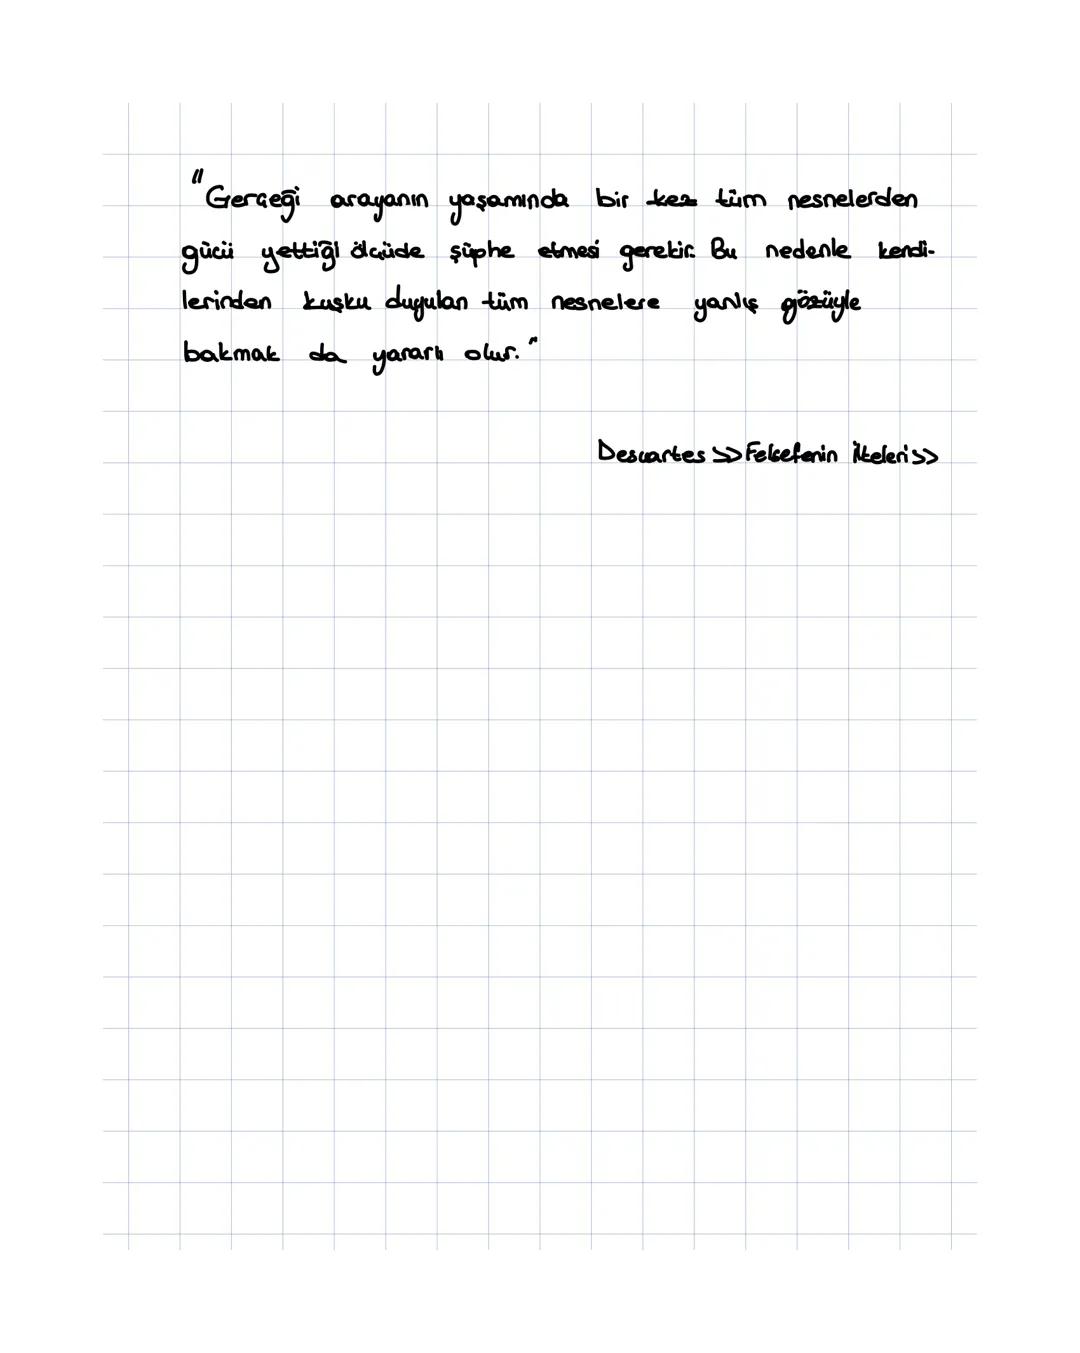 "Gerçeği arayanın yaşamında bir kez tüm nesnelerden
gücü yettiği ölçüde şüphe etmesi gerekir. Bu nedenle kendi-
lerinden kuşku duyulan tüm nesnelere yanlış gözüyle
bakmak da yararlı olur."
Descartes >> Felsefenin İlkeleri >>